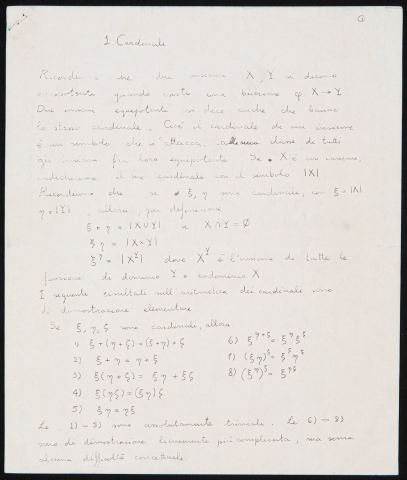 1
I Cardinali
Ricordiamo che due insiemi X, Y si dicono
equipotenti quando esiste una biiezione φ: X → Y
Due insiemi equipotenti si dice anche che hanno
lo stesso cardinale. Cioè il cardinale di un insieme
è un simbolo che si attacca, alla classe di tutti
gli insiemi fra loro equipotenti. Se X è un insieme,
indicheremo il suo cardinale con il simbolo |X|
Ricordiamo che se ξ, η sono cardinali, con ξ = |X|
η = |Y|, allora, per definizione
ξ + η = |X ∪ Y| se X ∩ Y = ∅
ξ η = |X × Y|
ξ^η = |X^Y| dove X^Y è l'insieme di tutte le
funzioni di dominio Y e codominio X
I seguenti risultati sull'aritmetica dei cardinali sono
di dimostrazione elementare
Se ξ, η, ζ sono cardinali, allora
1) ξ + (η + ζ) = (ξ + η) + ζ
2) ξ + η = η + ξ
3) ξ(η + ζ) = ξη + ξζ
4) ξ(ηζ) = (ξη)ζ
5) ξη = ηξ
6) ξ^(η+ζ) = ξ^η ξ^ζ
7) (ξη)^ζ = ξ^ζ η^ζ
8) (ξ^η)^ζ = ξ^(ηζ)
Le 1) – 5) sono assolutamente banali. Le 6) – 8)
sono di dimostrazione lievemente più complicata, ma senza
alcuna difficoltà concettuale.